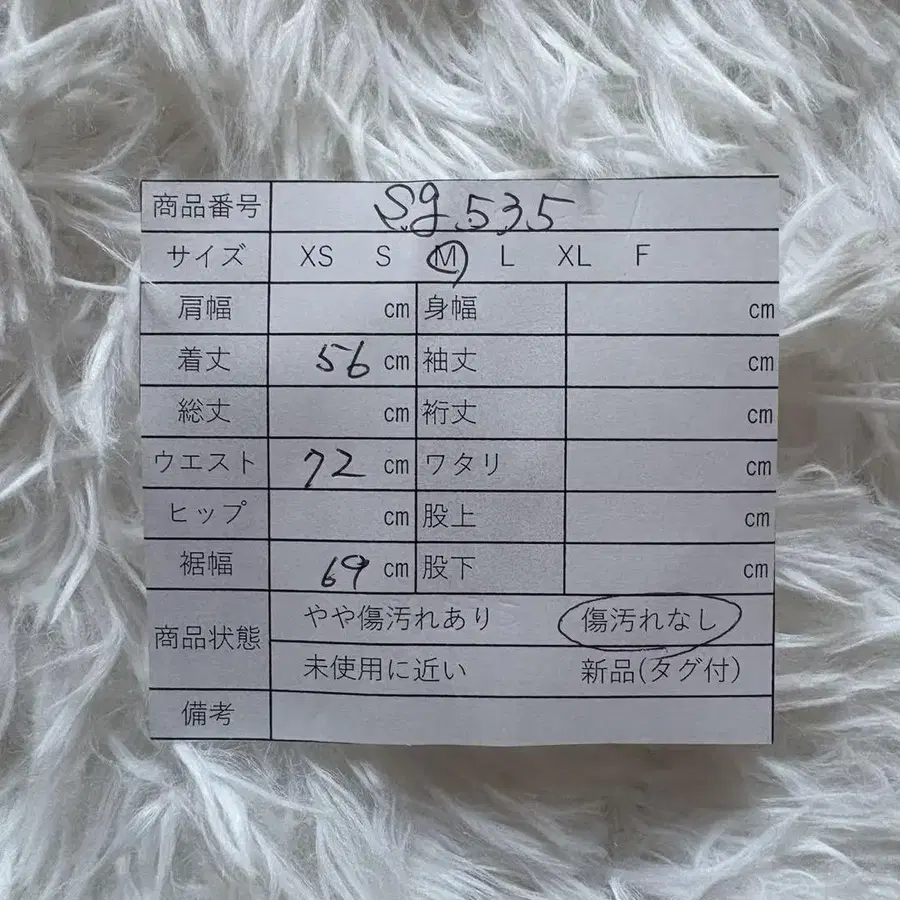 商品番号 Sg535
サイズ XS S M L XL F
肩幅 cm 身幅 cm
着丈 56 cm 袖丈 cm
総丈 cm 裄丈 cm
ウエスト 72 cm ワタリ cm
ヒップ cm 股上 cm
裾幅 69 cm 股下 cm
商品状態 やや傷汚れあり 傷汚れなし
未使用に近い 新品(タグ付)
備考